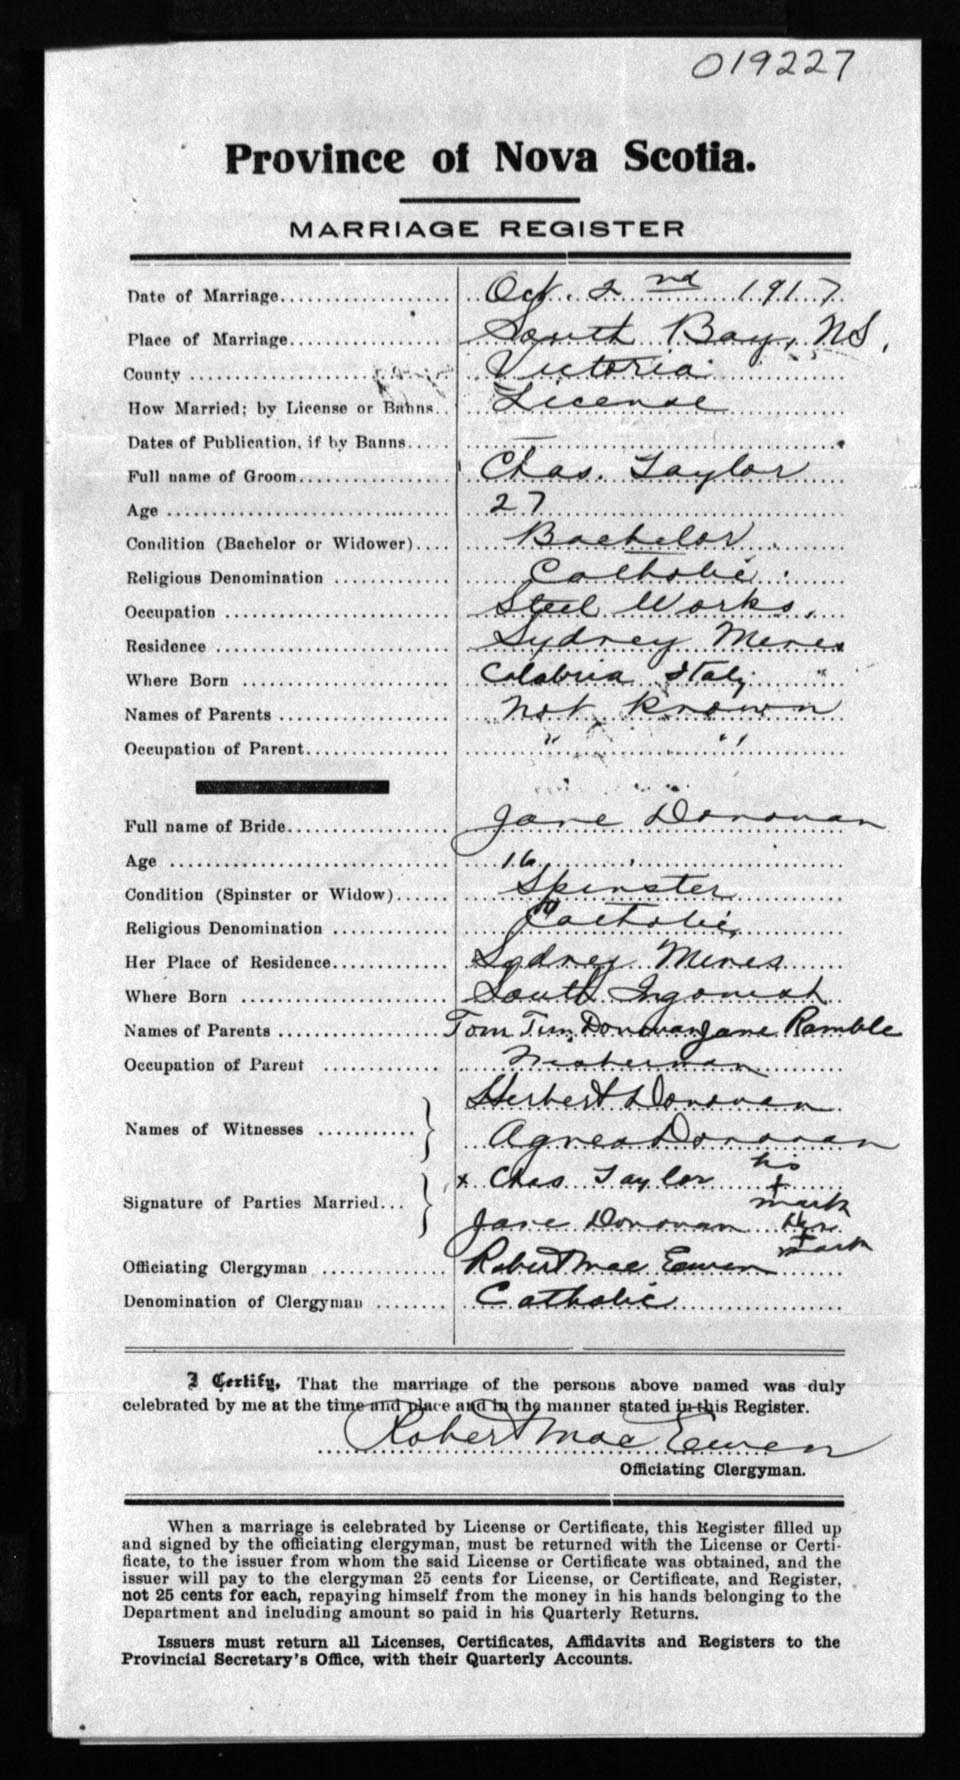 019227
Province of Nova Scotia.
MARRIAGE REGISTER
Date of Marriage.................... Oct. 2nd 1917
Place of Marriage................... South Bay, N.S.
County .................... Victoria
How Married; by License or Banns.. License
Dates of Publication, if by Banns.....
Full name of Groom.................. Chas. Taylor
Age .................... 27
Condition (Bachelor or Widower).... Bachelor
Religious Denomination ............ Catholic
Occupation .................... Steel Works.
Residence .................... Sydney Mines
Where Born .................... Calabria Italy
Names of Parents .................. not known
Occupation of Parent................ " "
Full name of Bride................. Jane Donovan
Age .................... 16
Condition (Spinster or Widow)...... Spinster
Religious Denomination ............ Catholic
Her Place of Residence............. Sydney Mines
Where Born .................... South Ingonish
Names of Parents .................. Tom Tim Donovan Jane Ramble
Occupation of Parent ............. Fisherman
Herbert Donovan
Names of Witnesses ..........
Agnes Donovan
x Chas Taylor his + mark
Signature of Parties Married...
Jane Donovan her + mark
Officiating Clergyman .............. Robert MacEwen
Denomination of Clergyman ........ Catholic
I Certify, That the marriage of the persons above named was duly
celebrated by me at the time and place and in the manner stated in this Register.
Robert MacEwen
Officiating Clergyman.
When a marriage is celebrated by License or Certificate, this Register filled up
and signed by the officiating clergyman, must be returned with the License or Certi-
ficate, to the issuer from whom the said License or Certificate was obtained, and the
issuer will pay to the clergyman 25 cents for License, or Certificate, and Register,
not 25 cents for each, repaying himself from the money in his hands belonging to the
Department and including amount so paid in his Quarterly Returns.
Issuers must return all Licenses, Certificates, Affidavits and Registers to the
Provincial Secretary's Office, with their Quarterly Accounts.